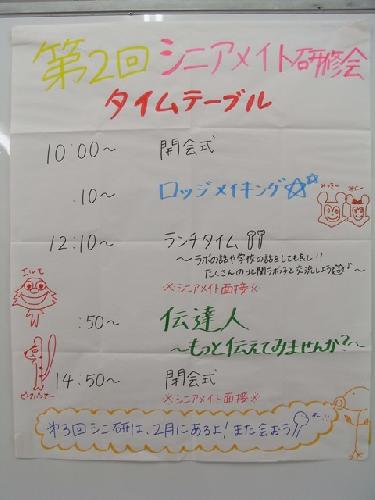 第2回 シニアメイト研修会
タイムテーブル
10:00〜 開会式
:10〜 ロッジメイキング☆☆
12:10〜 ランチタイム
〜ラボの話や学校の話をしても良し!!
たくさんの北関ラボっ子と交流しよう♪〜
※シニアメイト面接※
:50〜 伝達人
〜もっと伝えてみませんか?〜
14:50〜 閉会式
※シニアメイト面接※
第3回シニ研は、2月にあるよ!また会おう!!